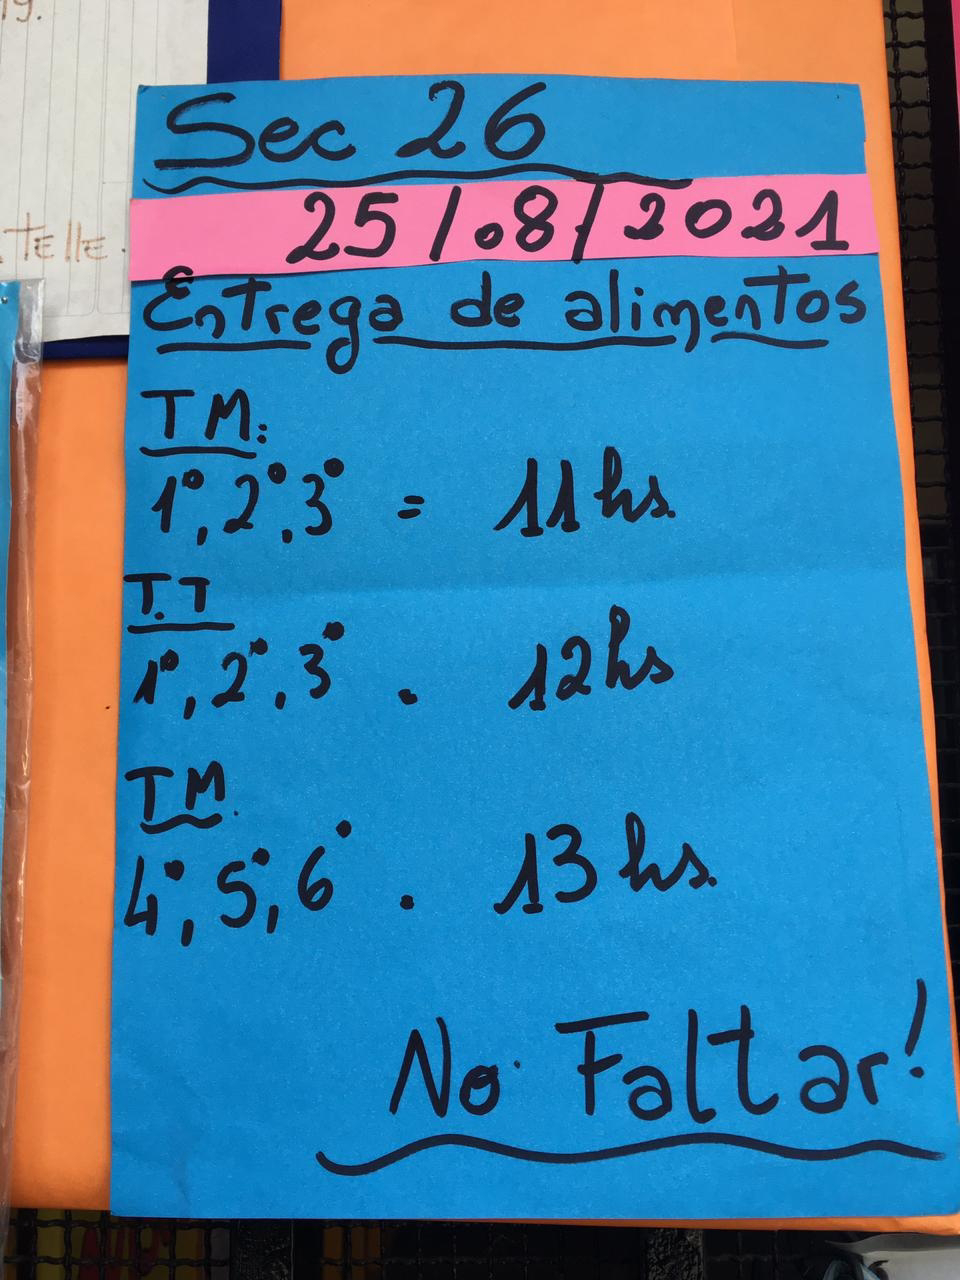 g.
TElle.
Sec 26
25/.8/2021
Entrega de alimentos
TM:
1°, 2°, 3° = 11 hs.
T.T
1°, 2°, 3° . 12 hs
TM.
4°, 5°, 6° . 13 hs.
No Faltar!